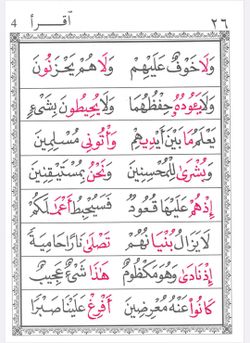 4 اقرأ ٢٦
وَلَا خَوْفٌ عَلَيْهِمْ وَلَا هُمْ يَحْزَنُونَ
وَلَا يَئُودُهُ حِفْظُهُمَا وَلَا يُحِيطُونَ بِشَيْءٍ
يَعْلَمُ مَا بَيْنَ أَيْدِيهِمْ وَأْتُونِي مُسْلِمِينَ
وَبُشْرَى لِلْمُحْسِنِينَ وَنَحْنُ بِمُسْتَيْقِنِينَ
إِذْ هُمْ عَلَيْهَا قُعُودٌ فَسَيُحْبِطُ أَعْمَالَكُمْ
لَا يَزَالُ بُنْيَانُهُمْ تَصْلَى نَارًا حَامِيَةً
إِذْ نَادَى وَهُوَ مَكْظُومٌ هَذَا شَيْءٌ عَجِيبٌ
كَانُوا عَنْهُ مُعْرِضِينَ أَفْرِغْ عَلَيْنَا صَبْرًا